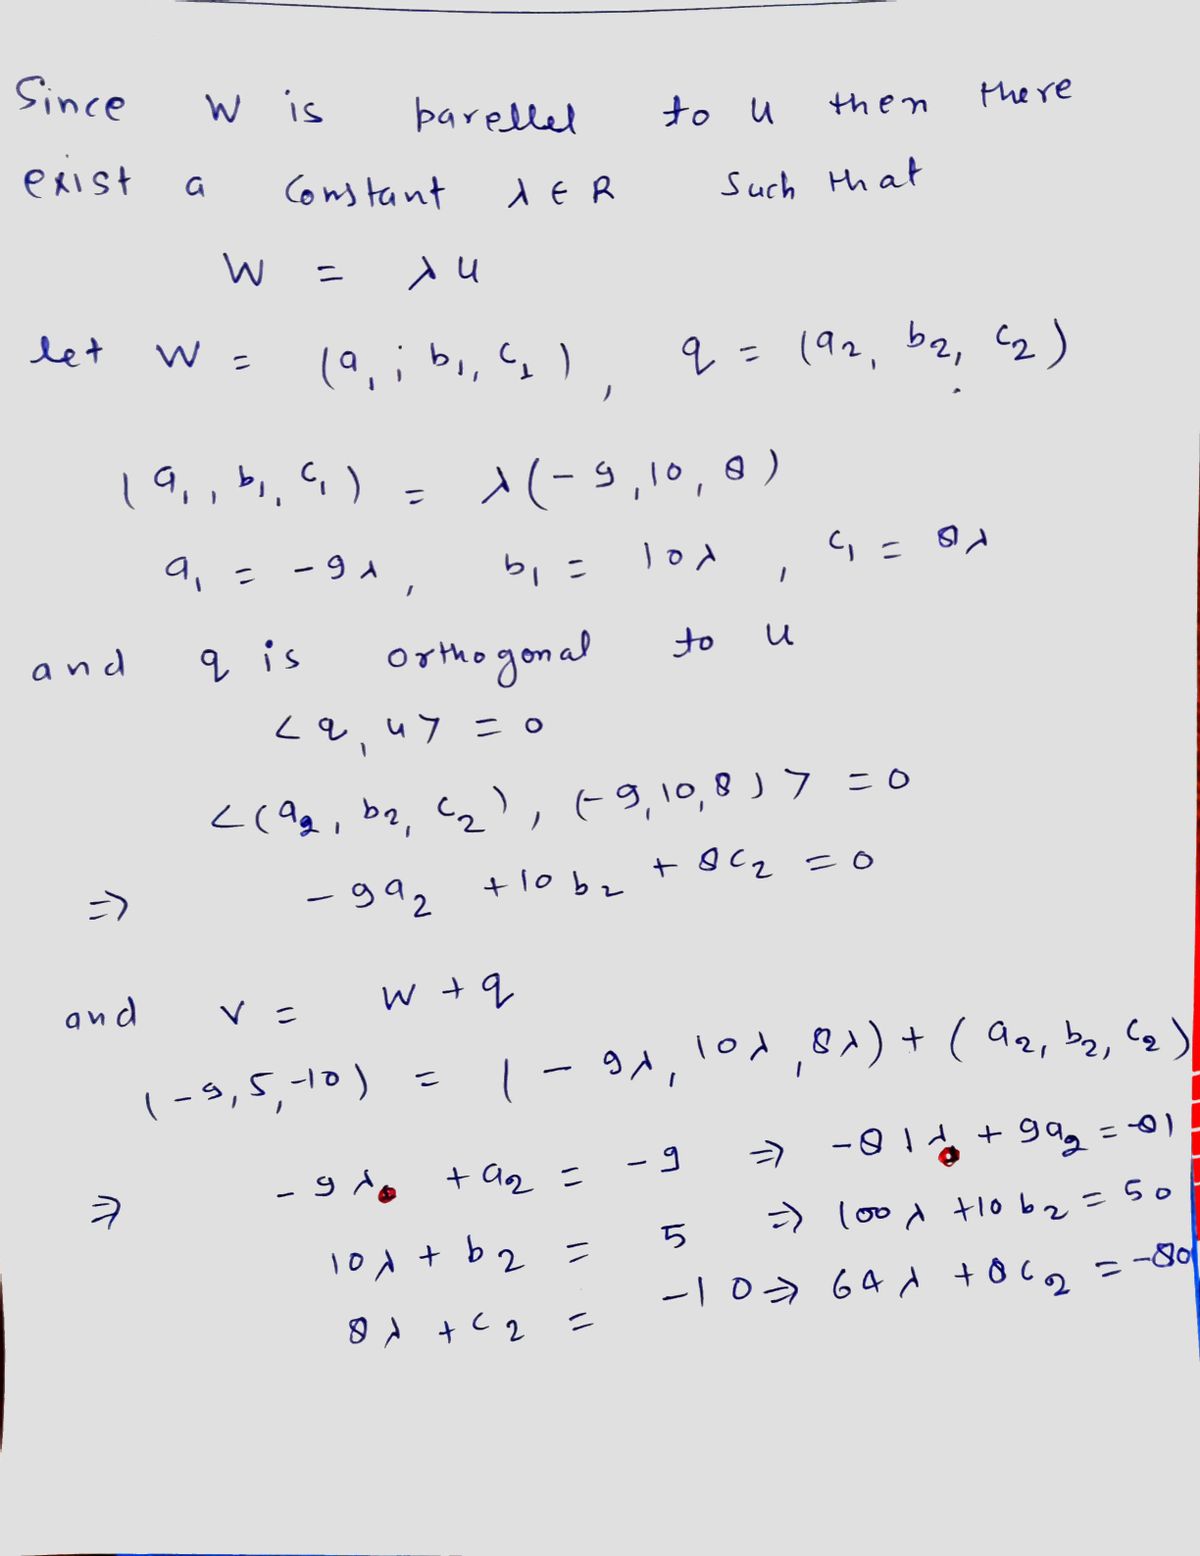 Since W is parellel to u then there
exist a constant λ ∈ R such that
W = λu
let W = (a₁; b₁, c₁), q = (a₂, b₂, c₂)
(a₁, b₁, c₁) = λ(-9, 10, 8)
a₁ = -9λ, b₁ = 10λ, c₁ = 8λ
and q is orthogonal to u
<q, u> = 0
<(a₂, b₂, c₂), (-9, 10, 8)> = 0
⇒ -9a₂ + 10b₂ + 8c₂ = 0
and v = W + q
(-9, 5, -10) = (-9λ, 10λ, 8λ) + (a₂, b₂, c₂)
⇒ -9λ + a₂ = -9 ⇒ -81λ + 9a₂ = -81
10λ + b₂ = 5 ⇒ 100λ + 10b₂ = 50
8λ + c₂ = -10 ⇒ 64λ + 8c₂ = -80